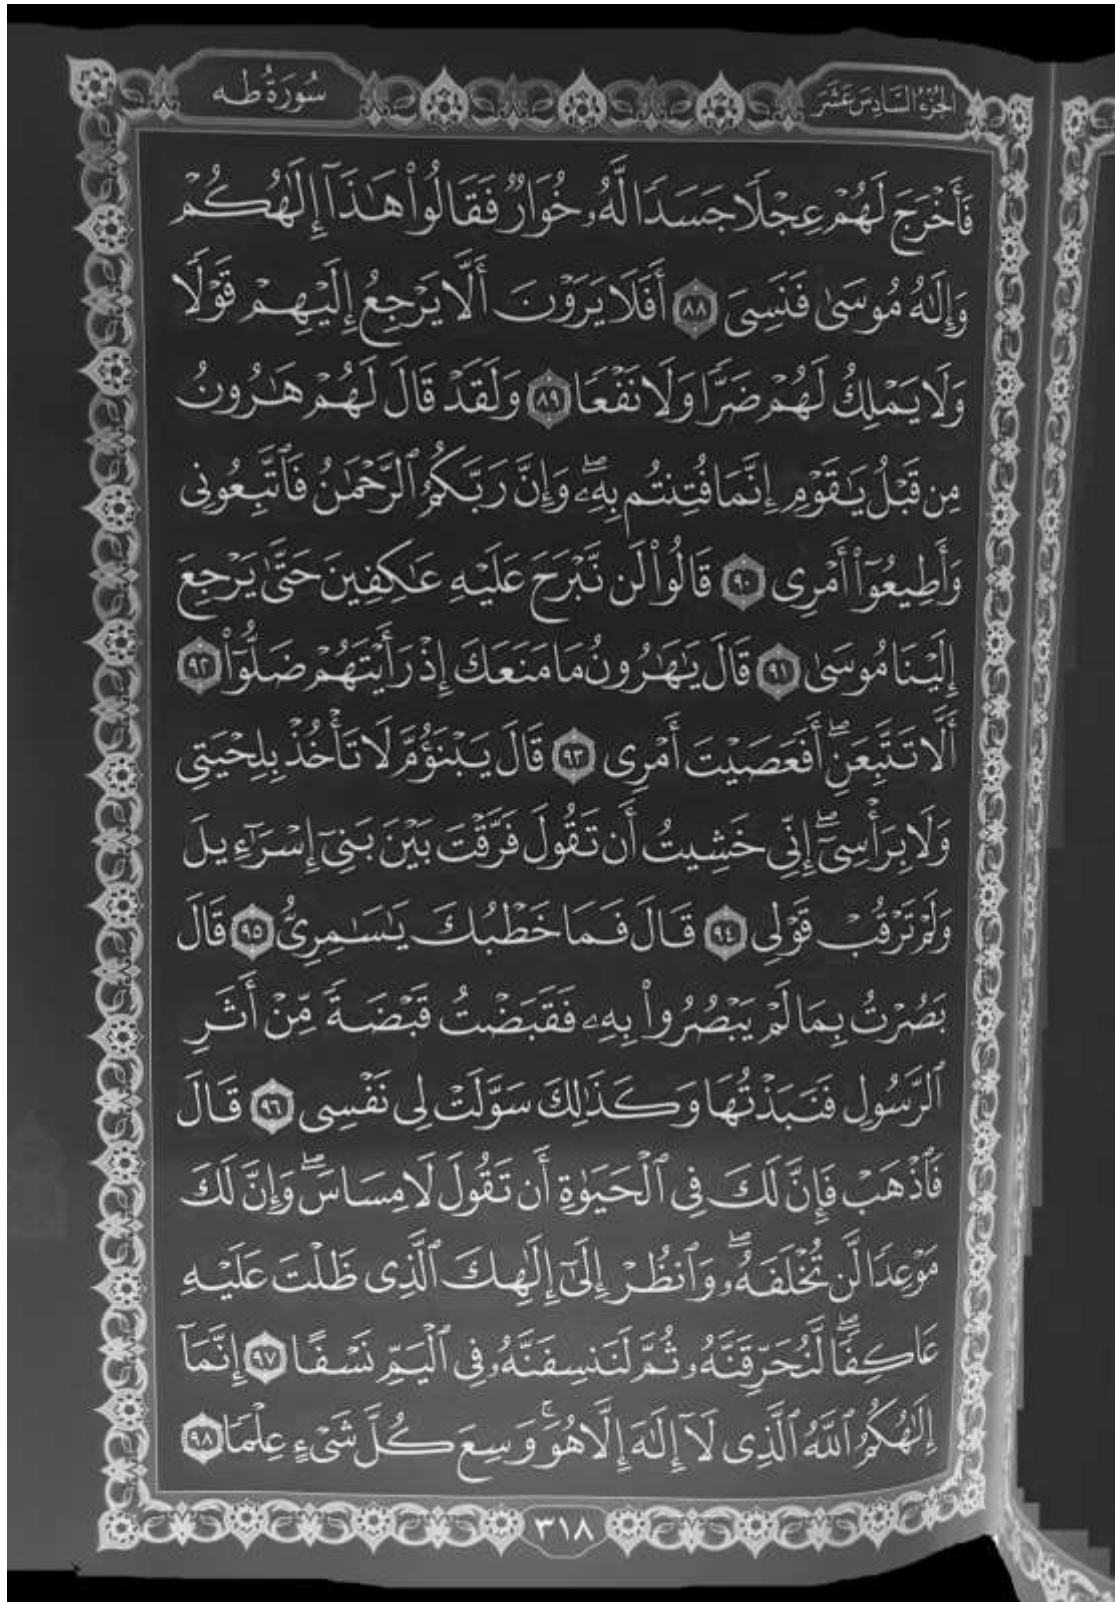 الجزء السادس عشر
سُورَةُ طه
فَأَخْرَجَ لَهُمْ عِجْلًا جَسَدًا لَّهُۥ خُوَارٌ فَقَالُوا۟ هَـٰذَآ إِلَـٰهُكُمْ
وَإِلَـٰهُ مُوسَىٰ فَنَسِىَ ٨٨ أَفَلَا يَرَوْنَ أَلَّا يَرْجِعُ إِلَيْهِمْ قَوْلًا
وَلَا يَمْلِكُ لَهُمْ ضَرًّا وَلَا نَفْعًا ٨٩ وَلَقَدْ قَالَ لَهُمْ هَـٰرُونُ
مِن قَبْلُ يَـٰقَوْمِ إِنَّمَا فُتِنتُم بِهِۦۖ وَإِنَّ رَبَّكُمُ ٱلرَّحْمَـٰنُ فَٱتَّبِعُونِى
وَأَطِيعُوٓا۟ أَمْرِى ٩٠ قَالُوا۟ لَن نَّبْرَحَ عَلَيْهِ عَـٰكِفِينَ حَتَّىٰ يَرْجِعَ
إِلَيْنَا مُوسَىٰ ٩١ قَالَ يَـٰهَـٰرُونُ مَا مَنَعَكَ إِذْ رَأَيْتَهُمْ ضَلُّوٓا۟ ٩٢
أَلَّا تَتَّبِعَنِۖ أَفَعَصَيْتَ أَمْرِى ٩٣ قَالَ يَبْنَؤُمَّ لَا تَأْخُذْ بِلِحْيَتِى
وَلَا بِرَأْسِىٓۖ إِنِّى خَشِيتُ أَن تَقُولَ فَرَّقْتَ بَيْنَ بَنِىٓ إِسْرَٰٓءِيلَ
وَلَمْ تَرْقُبْ قَوْلِى ٩٤ قَالَ فَمَا خَطْبُكَ يَـٰسَـٰمِرِىُّ ٩٥ قَالَ
بَصُرْتُ بِمَا لَمْ يَبْصُرُوا۟ بِهِۦ فَقَبَضْتُ قَبْضَةً مِّنْ أَثَرِ
ٱلرَّسُولِ فَنَبَذْتُهَا وَكَذَٰلِكَ سَوَّلَتْ لِى نَفْسِى ٩٦ قَالَ
فَٱذْهَبْ فَإِنَّ لَكَ فِى ٱلْحَيَوٰةِ أَن تَقُولَ لَا مِسَاسَۖ وَإِنَّ لَكَ
مَوْعِدًا لَّن تُخْلَفَهُۥۖ وَٱنظُرْ إِلَىٰٓ إِلَـٰهِكَ ٱلَّذِى ظَلْتَ عَلَيْهِ
عَاكِفًاۖ لَّنُحَرِّقَنَّهُۥ ثُمَّ لَنَنسِفَنَّهُۥ فِى ٱلْيَمِّ نَسْفًا ٩٧ إِنَّمَآ
إِلَـٰهُكُمُ ٱللَّهُ ٱلَّذِى لَآ إِلَـٰهَ إِلَّا هُوَۚ وَسِعَ كُلَّ شَىْءٍ عِلْمًا ٩٨
٣١٨